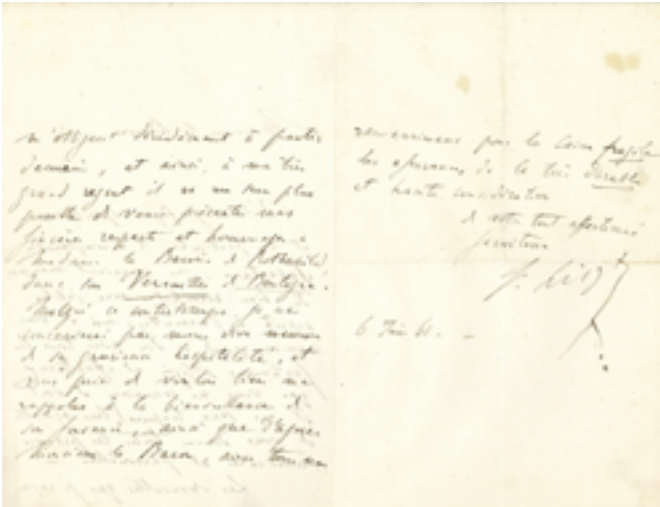 m'obligent décidément à partir
demain, et ainsi à mon très
grand regret il ne me sera plus
possible de venir présenter mes
sincères respects et hommages à
Madame la Baronne de Rothschild
dans son Versailles de Boulogne.
Malgré ce contretemps je ne
conserverai pas moins vive mémoire
de sa gracieuse hospitalité, et
vous prie de vouloir bien me
rappeler à la bienveillance de
ainsi que d'agréer
Monsieur le Baron, avec tous mes
remerciments pour la fragile
les de la très durable
et haute considération
de votre tout affectionné
serviteur
F. Liszt
6 Juin 61.